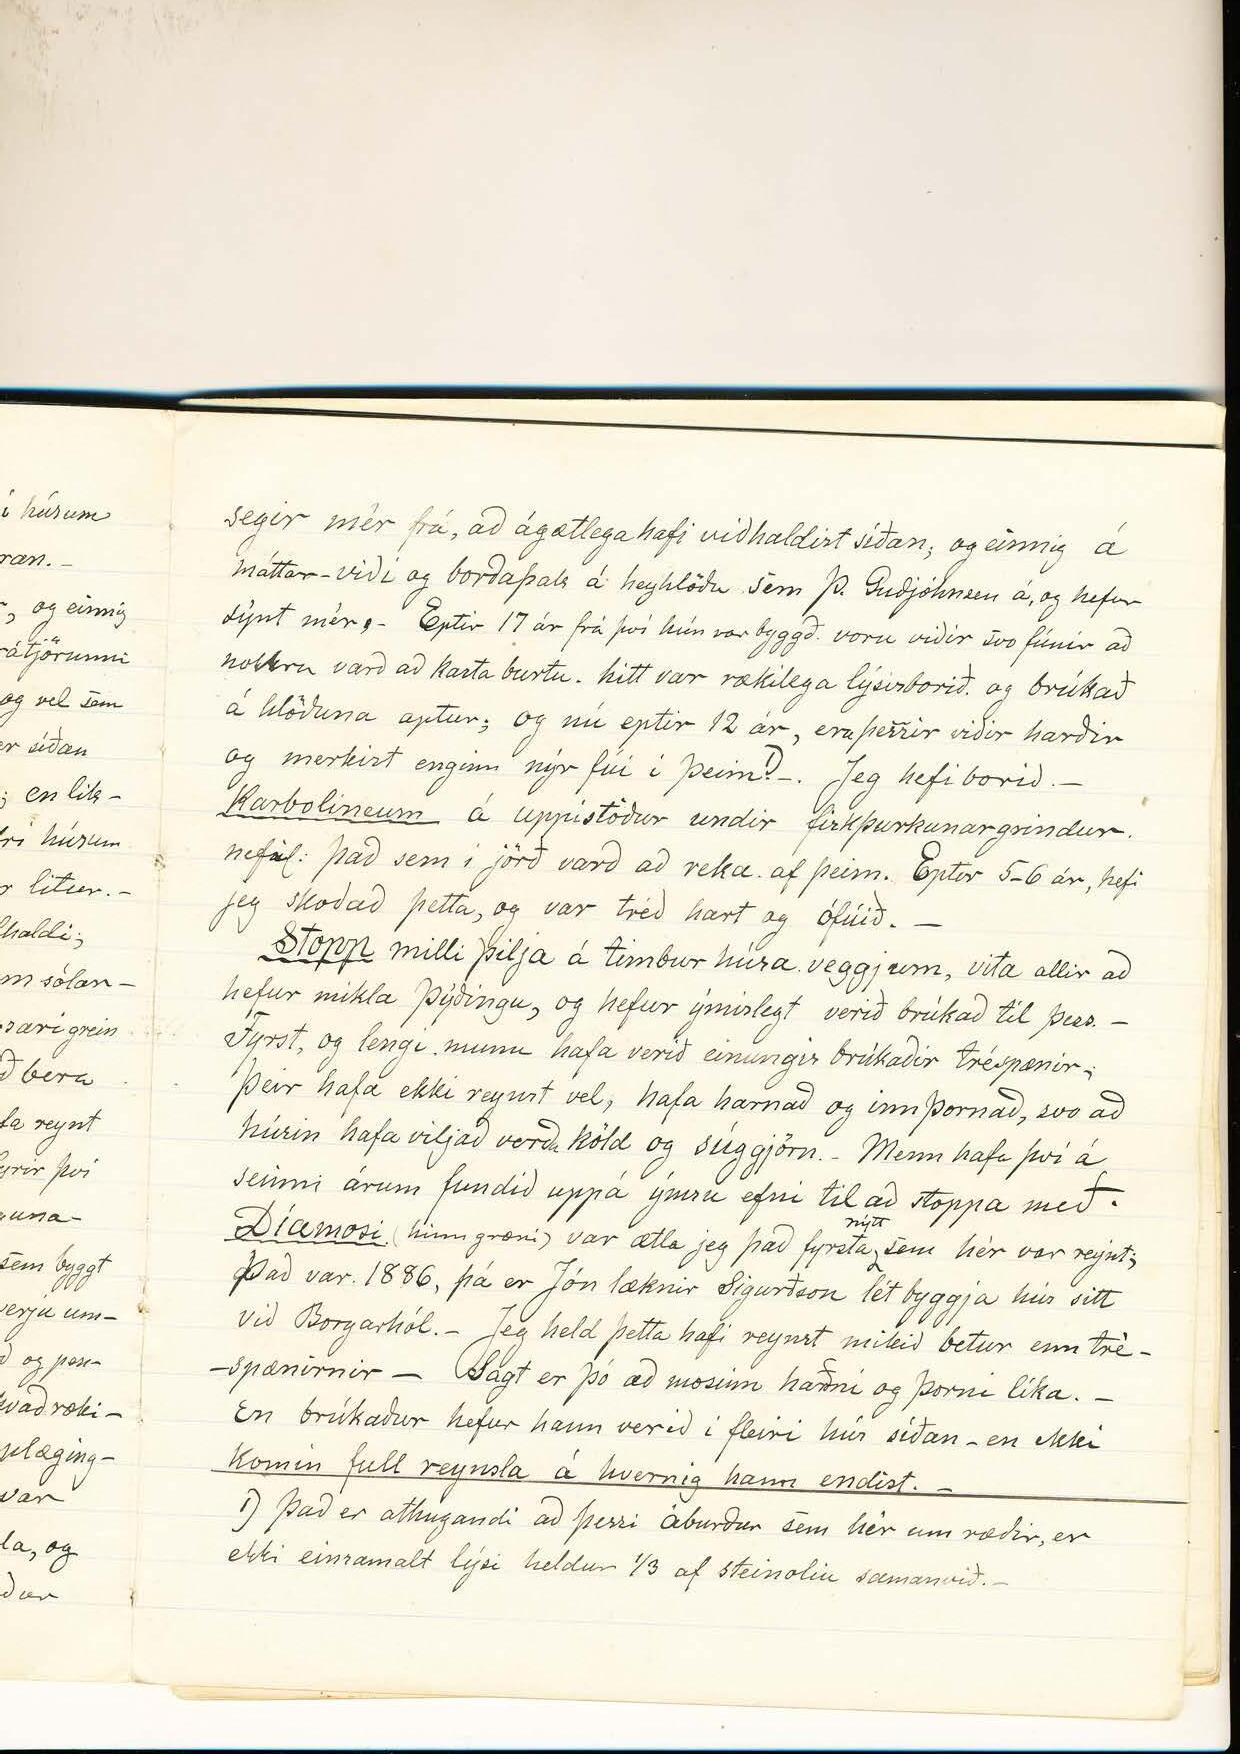 í húsum
ran. -
, og einnig
rátjörunni
og vel sem
er síðan
; en lik-
ri húsum
r litur. -
haldi;
m sólar-
særi grein
ð bera
fa reynt
fyrir því
guna-
sem byggt
verju um-
ð og pen-
hvað ræki-
plæging-
var
la, og
ður
segir mér frá, að ágætlega hafi viðhaldist síðan; og einnig á
máttar-viði og borðaþak á heyhlöðu sem Þ. Guðjóhnsen á, og hefur
sýnt mér, - Eptir 17 ár frá því hún var byggð. voru viðir svo fúnir að
nokkru varð að kasta burtu. hitt var rækilega lýsisborið. og brúkað
á hlöðuna aptur; og nú eptir 12 ár, eru þessir viðir harðir
og merkist enginn nýr fúi í þeim. 1) -. Jeg hefi borið. -
Karbolineum á uppistöður undir fiskþurkunargrindur.
nefnl: það sem í jörð varð að reka af þeim. Eptir 5-6 ár, hefi
jeg skoðað þetta, og var tréð hart og ófúið. -
Stopp milli þilja á timbur húsa veggjum, vita allir að
hefur mikla þýðingu, og hefur ýmislegt verið brúkað til þess. -
Fyrst, og lengi munu hafa verið einungis brúkaðir tréspænir;
Þeir hafa ekki reynst vel, hafa harnað og innþornað, svo að
húsin hafa viljað verða köld og súggjörn. - Menn hafa því á
seinni árum fundið uppá ýmsu efni til að stoppa með.
nýtt
Díamosi (hinn græni) var ætla jeg það fyrsta, sem hér var reynt;
Það var 1886, þá er Jón læknir Sigurðson lét byggja hús sitt
við Borgarhól. - Jeg held þetta hafi reynst mikið betur enn tré-
-spænirnir - Sagt er þó að mosinn harðni og þorni líka. -
En brúkaður hefur hann verið í fleiri hús síðan - en ekki
komin full reynsla á hvernig hann endist. -
1) Það er athugandi að þessi áburður sem hér um ræðir, er
ekki einsamalt lýsi heldur 1/3 af steinoliu samanvið. -